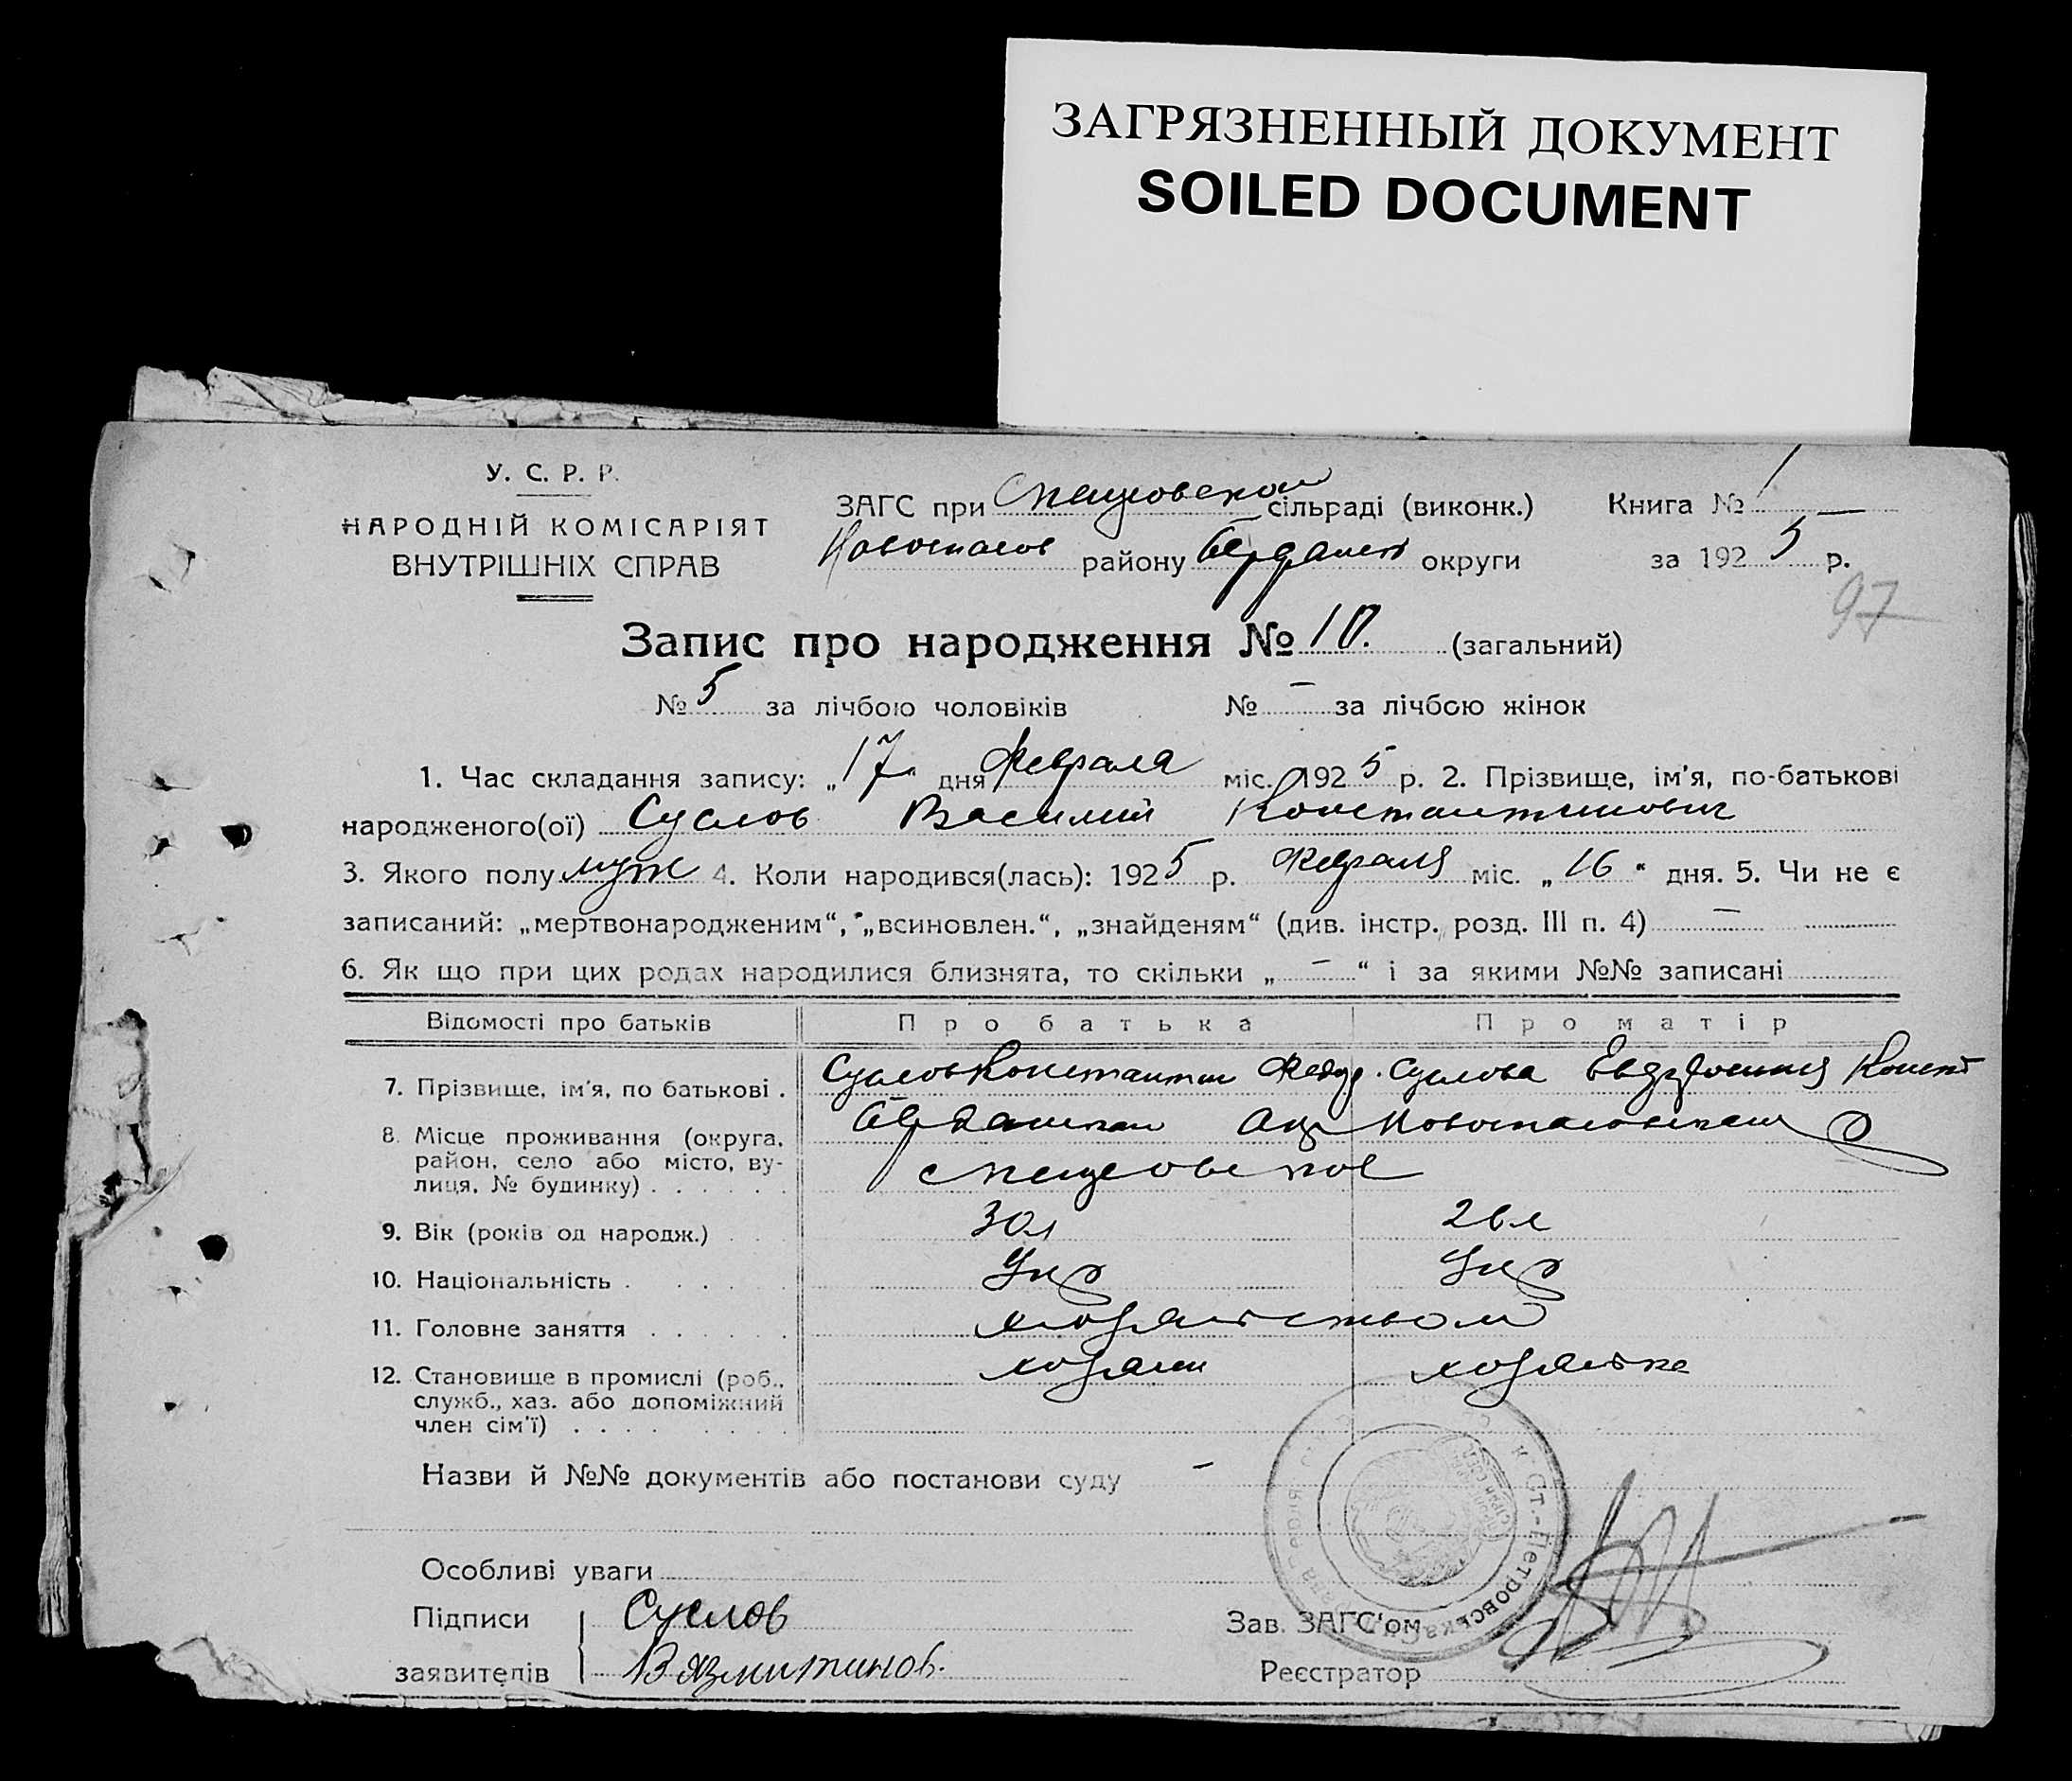 ЗАГРЯЗНЕННЫЙ ДОКУМЕНТ
SOILED DOCUMENT
У. С. Р. Р.
НАРОДНІЙ КОМІСАРІЯТ
ВНУТРІШНІХ СПРАВ
ЗАГС при сільраді (виконк.) Книга № 1
Новоспасов району Бердянск округи за 1925 р.
97
Запис про народження № 10. (загальний)
№ 5 за лічбою чоловіків № – за лічбою жінок
1. Час складання запису: „17“ дня Февраля міс. 1925 р. 2. Прізвище, ім'я, по-батькові
народженого(ої) Суслов Василий Константинович
3. Якого полу муж 4. Коли народився(лась): 1925 р. Февраля міс. „16“ дня. 5. Чи не є
записаний: „мертвонародженим“, „всиновлен.“, „знайденям“ (див. інстр. розд. III п. 4) –
6. Як що при цих родах народилися близнята, то скільки „ – “ і за якими №№ записані
Відомості про батьків Про батька Про матір
7. Прізвище, ім'я, по батькові . Суслов Константин Федор. Суслова Евдокия Конст
8. Місце проживання (округа, район, село або місто, вулиця, № будинку) . . . . . .
9. Вік (років од народж.) . . 30л 26л
10. Національність . . . . Укр Укр
11. Головне заняття . . . . . . хозяйством
12. Становище в промислі (роб., хозяин хозяйка
служб., хаз. або допоміжний
член сім'ї) . . . . . . . .
Назви й №№ документів або постанови суду –
Особливі уваги
Підписи Суслов Зав. ЗАГС'ом
заявителів Вязмитинов. Реєстратор